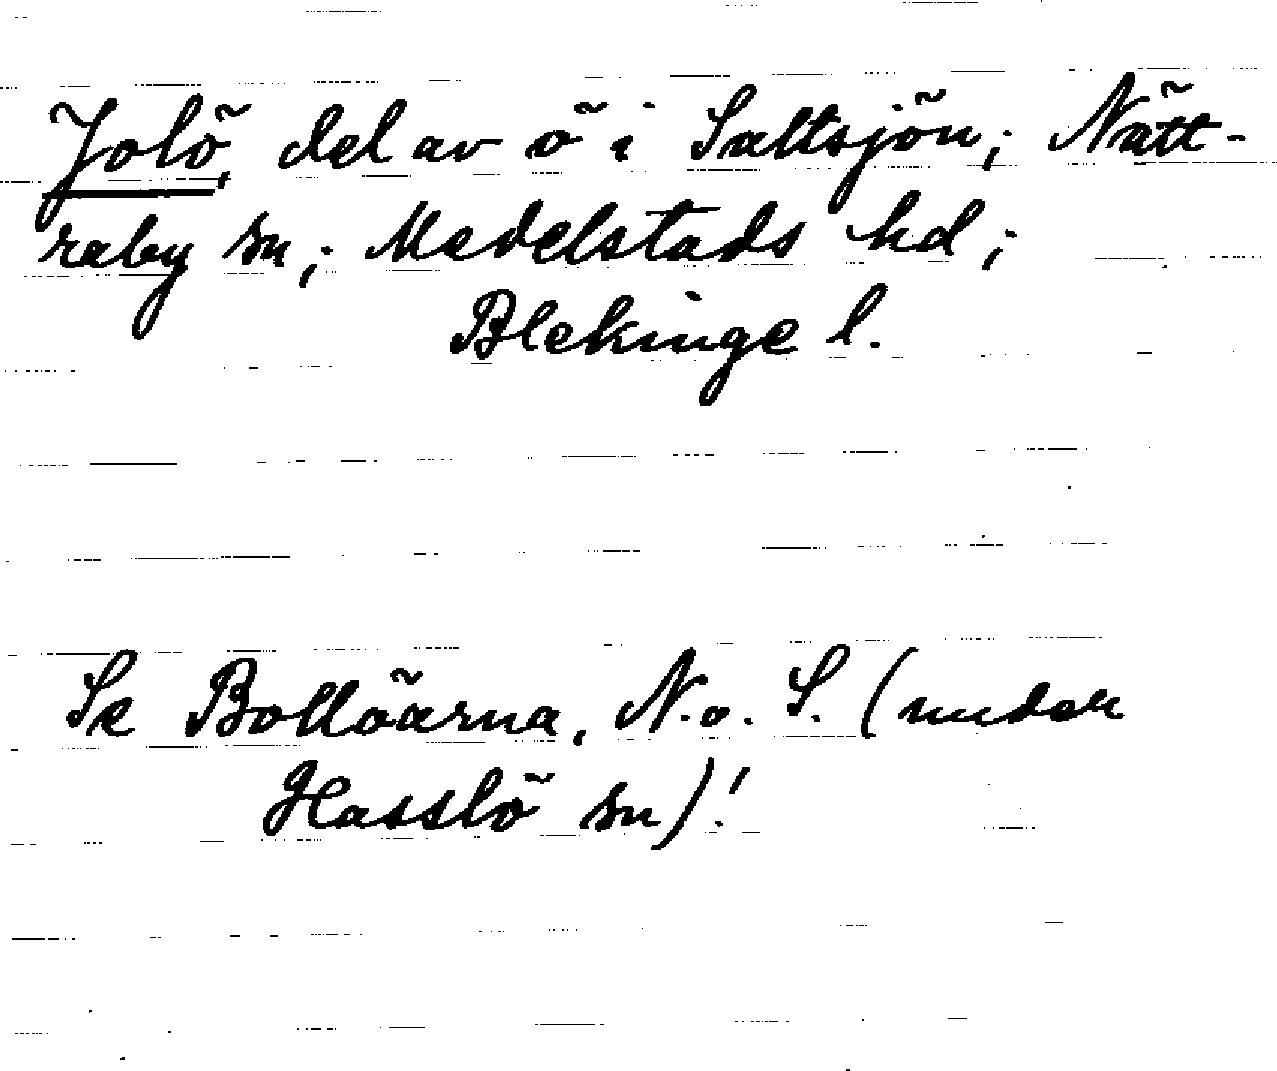 Jolö, del av ö i Saltsjön; Nätt-
raby sn; Medelstads hd;
Blekinge l.
Se Bollöarna, N. o. S. (under
Hasslö sn)!